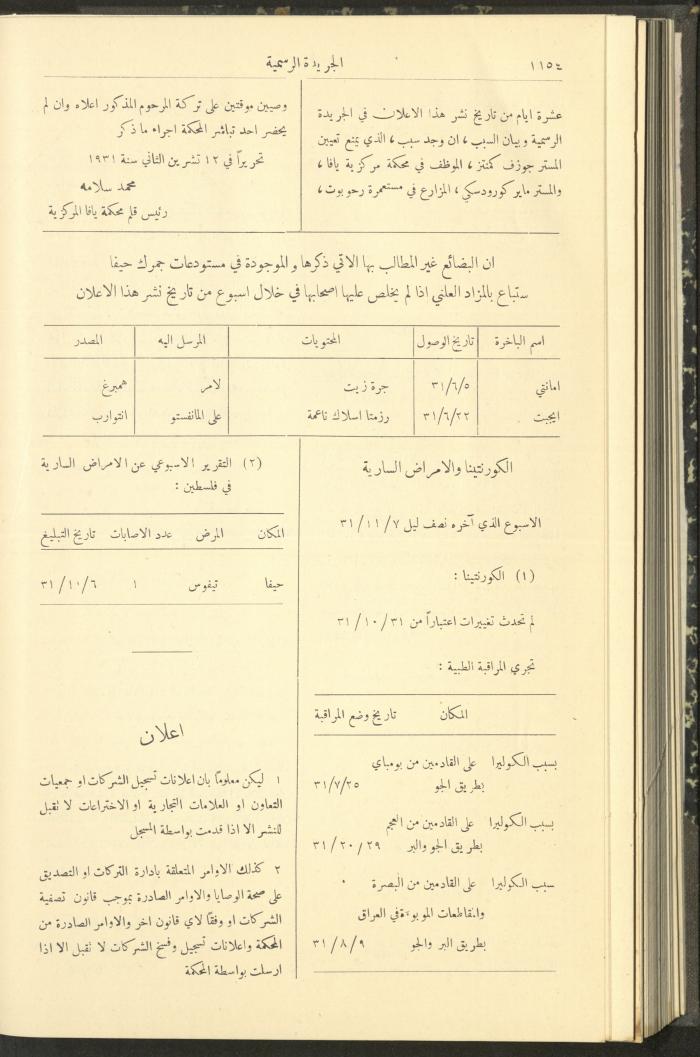 الجريدة الرسمية
عشرة ايام من تاريخ نشر هذا الاعلان في الجريدة
الرسمية وبيان السبب ، ان وجد سبب ، الذي يمنع تعيين
المستر جوزف كمنتز ، الموظف في محكمة مركزية يافا ،
والمستر ماير كورودسكي ، المزارع في مستعمرة رحوبوت ،
وصيين موقتين على تركة المرحوم المذكور اعلاه وان لم
يحضر احد تباشر المحكمة اجراء ما ذكر
تحريراً في ١٢ تشرين الثاني سنة ١٩٣١
محمد سلامه
رئيس قلم محكمة يافا المركزية
ان البضائع غير المطالب بها الاتي ذكرها والموجودة في مستودعات جمرك حيفا
ستباع بالمزاد العلني اذا لم يخلص عليها اصحابها في خلال اسبوع من تاريخ نشر هذا الاعلان
اسم الباخرة تاريخ الوصول المحتويات المرسل اليه المصدر
امانتي ٣١/٦/٥ جرة زيت لامر همبرغ
ايجبت ٣١/٦/٢٢ رزمتا اسلاك ناعمة على المانفستو انتوارب
الكورنتينا والامراض السارية
الاسبوع الذي آخره نصف ليل ٣١/١١/٧
(١) الكورنتينا :
لم تحدث تغييرات اعتباراً من ٣١/١٠/٣١
تجري المراقبة الطبية :
المكان تاريخ وضع المراقبة
بسبب الكوليرا على القادمين من بومباي
بطريق الجو ٣١/٧/٢٥
بسبب الكوليرا على القادمين من العجم
بطريق الجو والبر
سبب الكوليرا على القادمين من البصرة
والمقاطعات الموبوءة في العراق
بطريق البر والجو ٣١/٨/٩
(٢) التقرير الاسبوعي عن الامراض السارية
في فلسطين :
المكان المرض عدد الاصابات تاريخ التبليغ
حيفا تيفوس ١ ٣١/١٠/٦
اعلان
١ ليكن معلوماً بان اعلانات تسجيل الشركات او جمعيات
التعاون او العلامات التجارية او الاختراعات لا تقبل
للنشر الا اذا قدمت بواسطة المسجل
٢ كذلك الاوامر المتعلقة بادارة التركات او التصديق
على صحة الوصايا والاوامر الصادرة بموجب قانون تصفية
الشركات او وفقاً لاي قانون اخر والاوامر الصادرة من
المحكمة واعلانات تسجيل وفسخ الشركات لا تقبل الا اذا
ارسلت بواسطة المحكمة